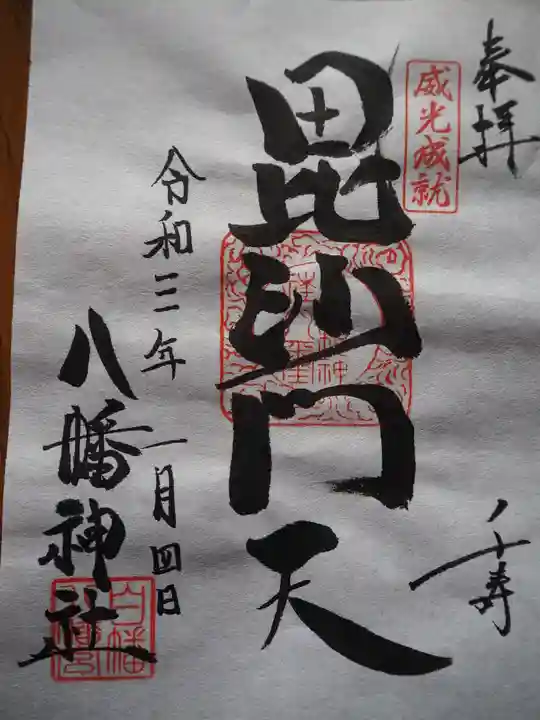 奉拝
威光成就
毘沙門天
令和三年 一月四日
八幡神社